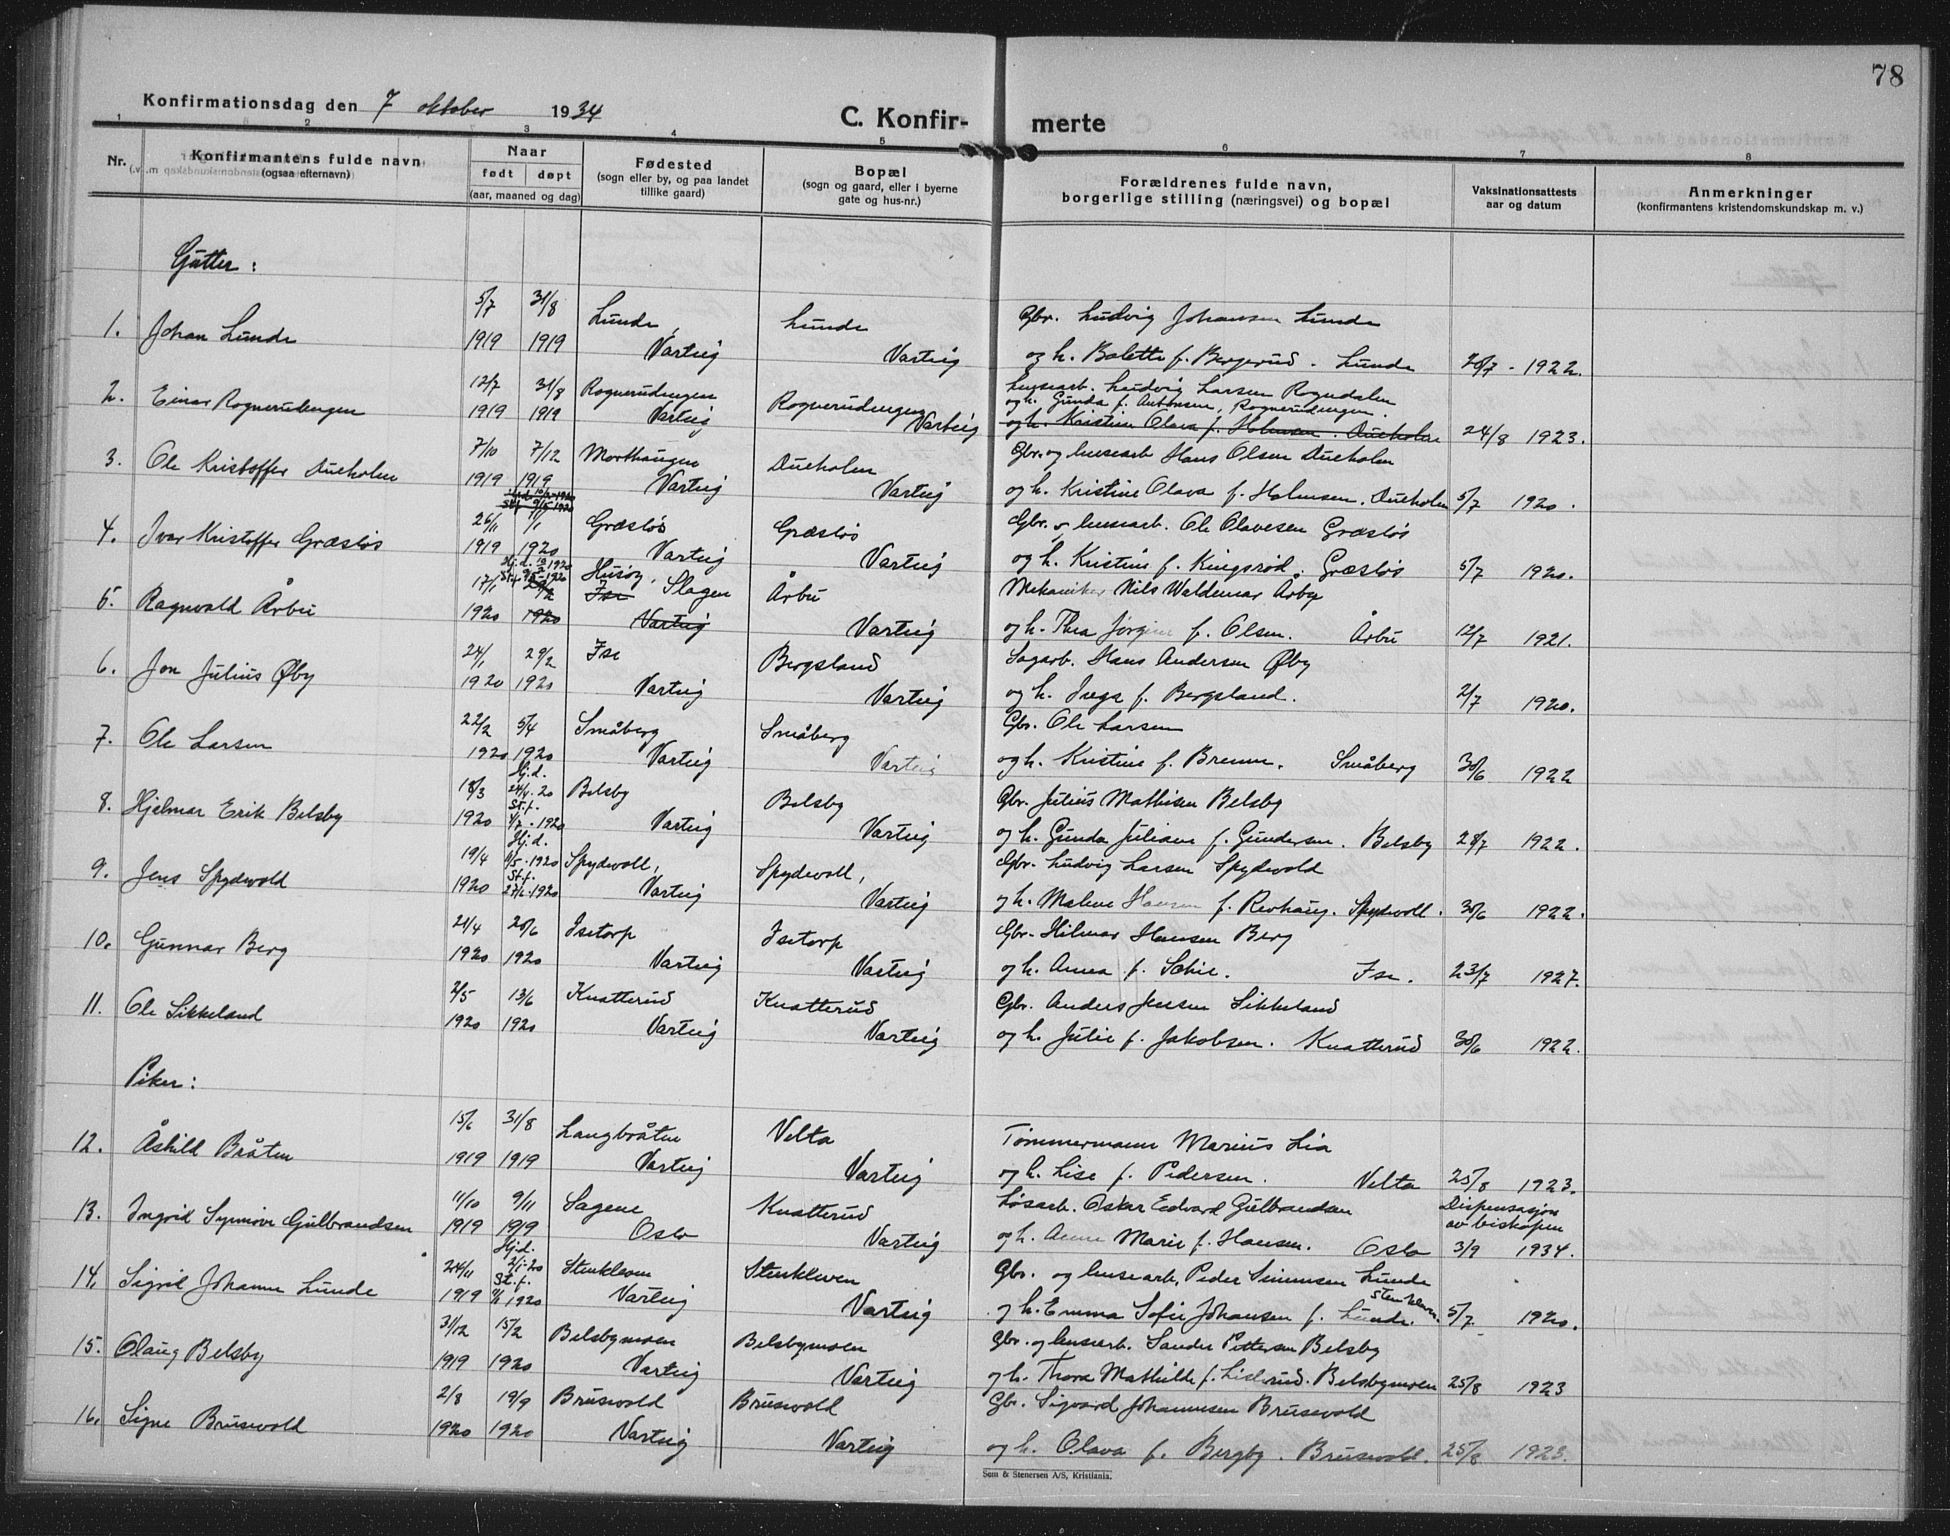 78
Konfirmationsdag den 7 oktober 1934
C. Konfir- merte
1 2 3 4 5 6 7 8
Nr. Konfirmantens fulde navn (ogsaa efternavn) Naar født døpt (aar, maaned og dag) Fødested (sogn eller by, og paa landet tillike gaard) Bopæl (sogn og gaard, eller i byerne gate og hus-nr.) Forældrenes fulde navn, borgerlige stilling (næringsvei) og bopæl Vaksinationsattests aar og datum Anmerkninger (konfirmantens kristendomskundskap m. v.)
Gutter:
5/7 31/8 Lunde, Lunde Gbr. Ludvig Johansen Lunde
1. Johan Lunde 1919 1919 Varteig Varteig og h. Bolette f. Bergerud. Lunde 20/7 - 1922.
12/7 31/8 Rognerudengen Rognerudengen husearb. Ludvig Larsen Rogndalen
og h. Gunda f. Antonsen, Rognerudengen.
2. Einar Rognerudengen 1919 1919 Varteig Varteig og h. Kristine Olava f. Holmsen. Dueholm 24/8 1923.
7/10 7/12 Morthaugen Dueholm Gbr. og husearb Hans Olsen Dueholm
3. Ole Kristoffer Dueholm 1919 1919 Varteig Varteig og h. Kristine Olava f. Holmsen. Dueholm 5/7 1920.
26/11 1/1 Græsløs Græsløs Gbr. & husearb. Ole Olavesen Græsløs
4. Ivar Kristoffer Græsløs 1919 1920 Varteig Varteig og h. Kristine f. Kingsrød. Græsløs 5/7 1920.
Hj.d. 1920
St.f. 1920
17/1 29/2 Husøy, Ise Slagen Årbu Mekaniker Nils Waldemar Årby
5. Ragnvald Årbu 1920 1920 Varteig Varteig og h. Thea Jørgine f. Olsen. Årbu 12/7 1921.
24/1 29/2 Ise Bergsland Sagarb. Hans Andersen Øby
6. Jon Julius Øby 1920 1920 Varteig Varteig og h. Inga f. Bergsland. 2/7 1920.
22/2 5/4 Småberg Småberg Gbr. Ole Larsen
7. Ole Larsen 1920 1920 Varteig Varteig og h. Kristine f. Brenne. Småberg 30/6 1922
Hj.d.
18/3 24/4.20 Belsby Belsby Gbr. Julius Mathisen Belsby
St.f.
8. Hjelmar Erik Belsby 1920 4/7 - 1920 Varteig Varteig og h. Gunda Juliane f. Gundersen. Belsby 28/7 1922.
Hj.d.
19/4 9/5 - 1920 Spydevoll, Spydevoll, Gbr. Ludvig Larsen Spydevold
St.f.
9. Jens Spydevold 1920 27/6 - 1920 Varteig Varteig og h. Malene Hansen f. Revhaug. Spydevoll. 30/6 1922.
21/4 20/6 Isetorp Isetorp Gbr. Hilmar Hansen Berg
10. Gunnar Berg 1920 1920 Varteig Varteig og h. Anna f. Sælie. Ise. 23/7 1927.
2/5 13/6 Knatterud Knatterud Gbr. Anders Jensen Sikkeland
11. Ole Sikkeland 1920 1920 Varteig Varteig og h. Julie f. Jakobsen. Knatterud 30/6 1922.
Piker:
15/6 31/8 Langbråten Velta Tømmermann Marius Lia
12. Åshild Bråten 1919 1919 Varteig Varteig og h. Lise f. Pedersen. Velta 25/8 1923.
11/10 9/11 Sagene Knatterud Løsarb. Oskar Edvard Gulbrandsen Dispensasjon av biskopen
13. Ingrid Synnøve Gulbrandsen 1919 1919 Oslo Varteig og h. Anne Marie f. Hansen. Oslo 3/9 1934.
Hj.d.
24/11 2/1-20 Stenkleven Stenkleven Gbr. og husearb. Peder Simensen Lunde
St.f. Stenkleven.
14. Sigrid Johanne Lunde 1919 1920 Varteig Varteig og h. Emma Sofie Johansen f. Lunde. 5/7 1920.
31/12 15/2 Belsbymoen Belsbymoen Gbr. og husearb. Sander Pettersen Belsby
15. Olaug Belsby 1919 1920 Varteig Varteig og h. Thora Mathilde f. Lislerud. Belsbymoen 25/8 1923
2/8 19/9 Brusevold Brusevold Gbr. Sigvard Johannesen Brusevold
16. Signe Brusevold 1920 1920 Varteig Varteig og h. Olava f. Bergby. Brusevold. 25/8 1923.
Sem & Stenersen A/S, Kristiania.